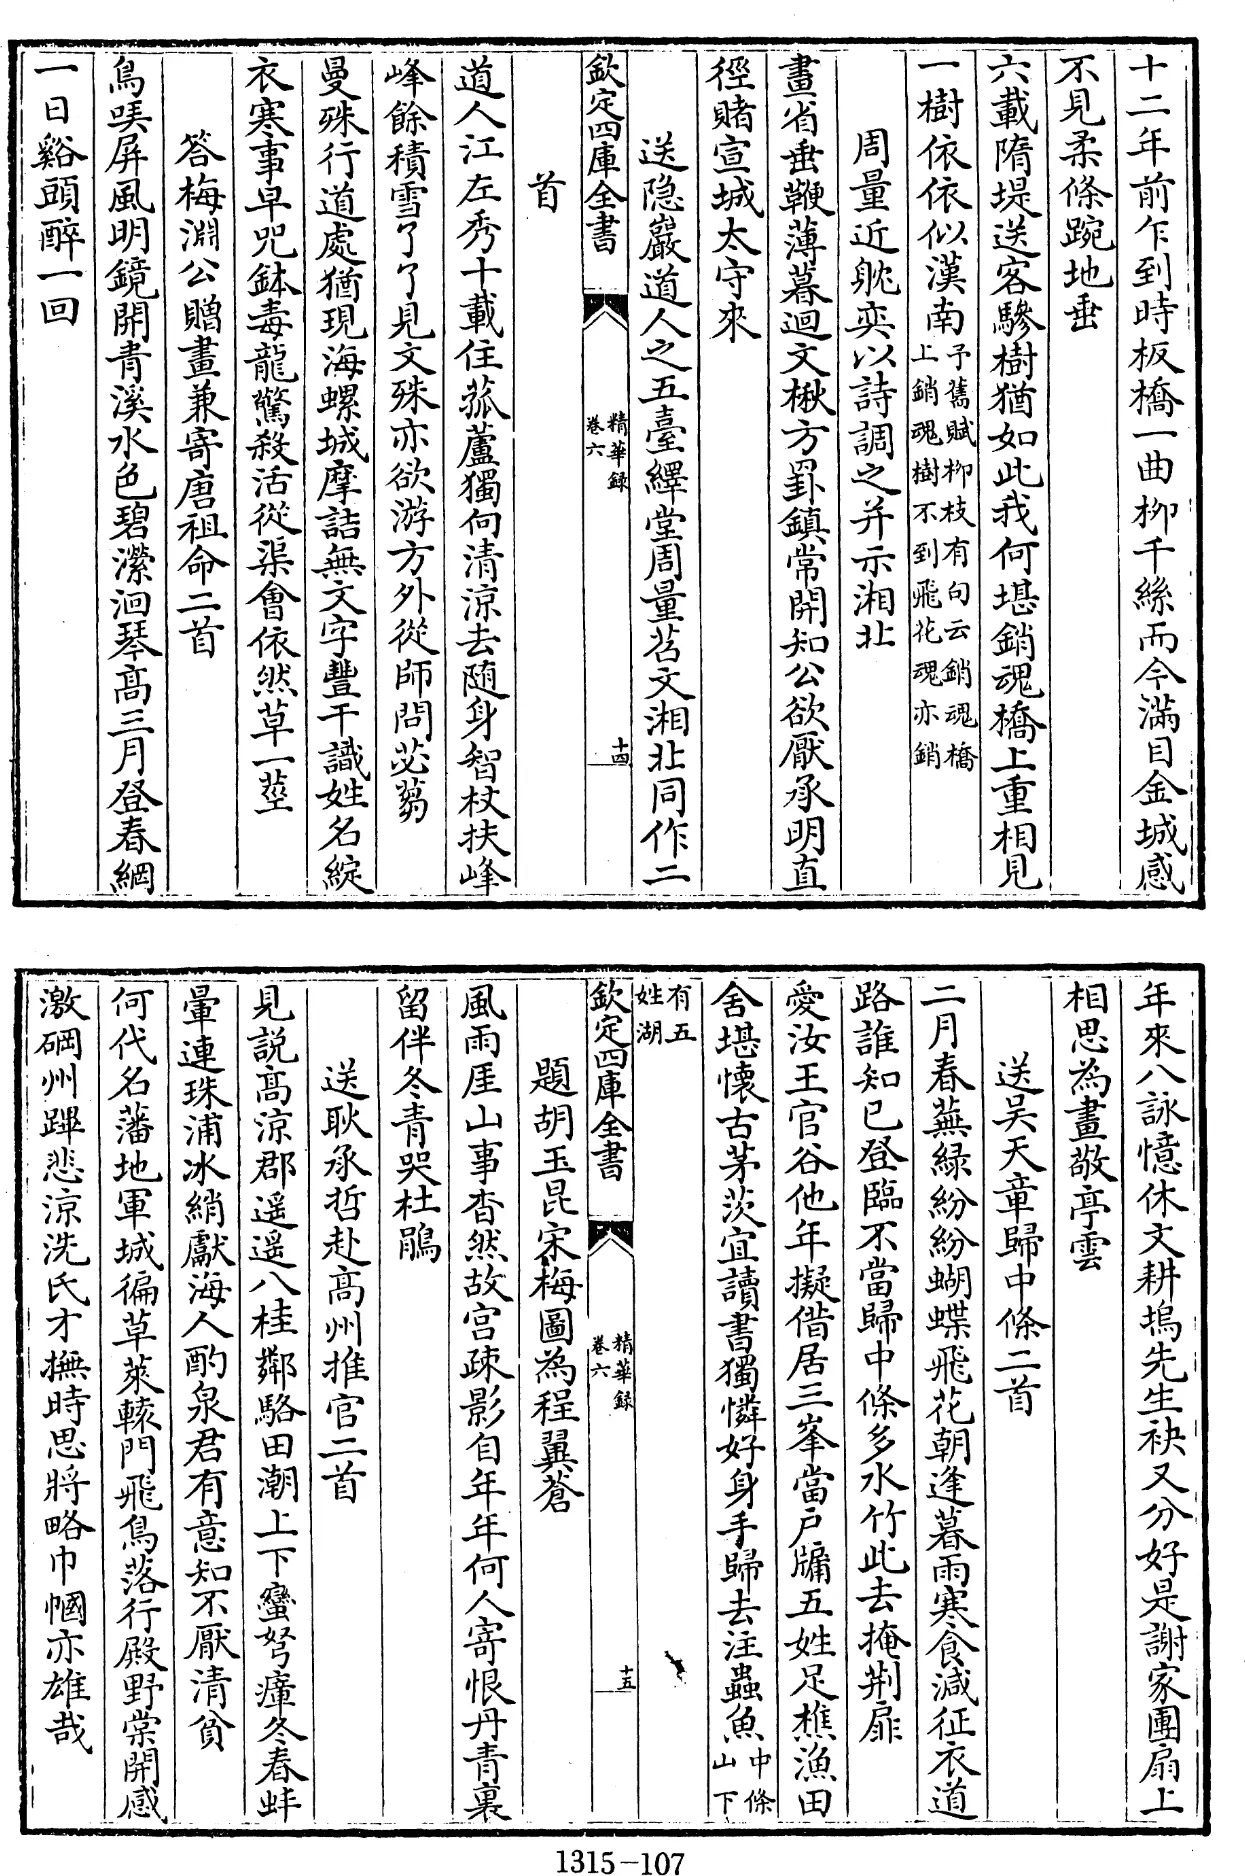 十二年前乍到時板橋一曲柳千絲而今滿目金城感
不見柔條踠地垂
六載隋堤送客驂樹猶如此我何堪銷魂橋上重相見
一樹依依似漢南予舊賦柳枝有句云銷魂橋
上銷魂樹不到飛花魂亦銷
周量近躭奕以詩調之并示湘北
畫省垂鞭薄暮迴文楸方罫鎮常開知公欲厭承明直
徑賭宣城太守來
送隐巖道人之五臺繹堂周量苕文湘北同作二
欽定四庫全書
精華録
卷六
十四
首
道人江左秀十載住菰蘆獨向清涼去随身智杖扶峰
峰餘積雪了了見文殊亦欲游方外從師問苾蒭
曼殊行道處猶現海螺城摩詰無文字豐干識姓名綻
衣寒事早咒鉢毒龍驚殺活從渠會依然草一莖
答梅淵公贈畫兼寄唐祖命二首
鳥嘆屏風明鏡開青溪水色碧瀠洄琴髙三月登春網
一日谿頭醉一回
年來八詠憶休文耕塢先生袂又分好是謝家團扇上
相思為畫敬亭雲
送吴天章歸中條二首
二月春蕪緑紛紛蝴蝶飛花朝逢暮雨寒食減征衣道
路誰知已登臨不當歸中條多水竹此去掩荆扉
愛汝王官谷他年擬借居三峯當户牖五姓足樵漁田
舍堪懷古茅茨宜讀書獨憐好身手歸去注蟲魚中條
山下
有五
姓湖
欽定四庫全書
精華録
卷六
十五
題胡玉昆宋梅圖為程翼蒼
風雨厓山事杳然故宫疎影自年年何人寄恨丹青裏
留伴冬青哭杜鵑
送耿承哲赴髙州推官二首
見説髙涼郡遥遥八桂鄰駱田潮上下蠻弩瘴冬春蚌
暈連珠浦冰綃獻海人酌泉君有意知不厭清貧
何代名藩地軍城徧草萊轅門飛鳥落行殿野棠開感
激碙州蹕悲涼洗氏才撫時思將略巾幗亦雄哉
1315-107